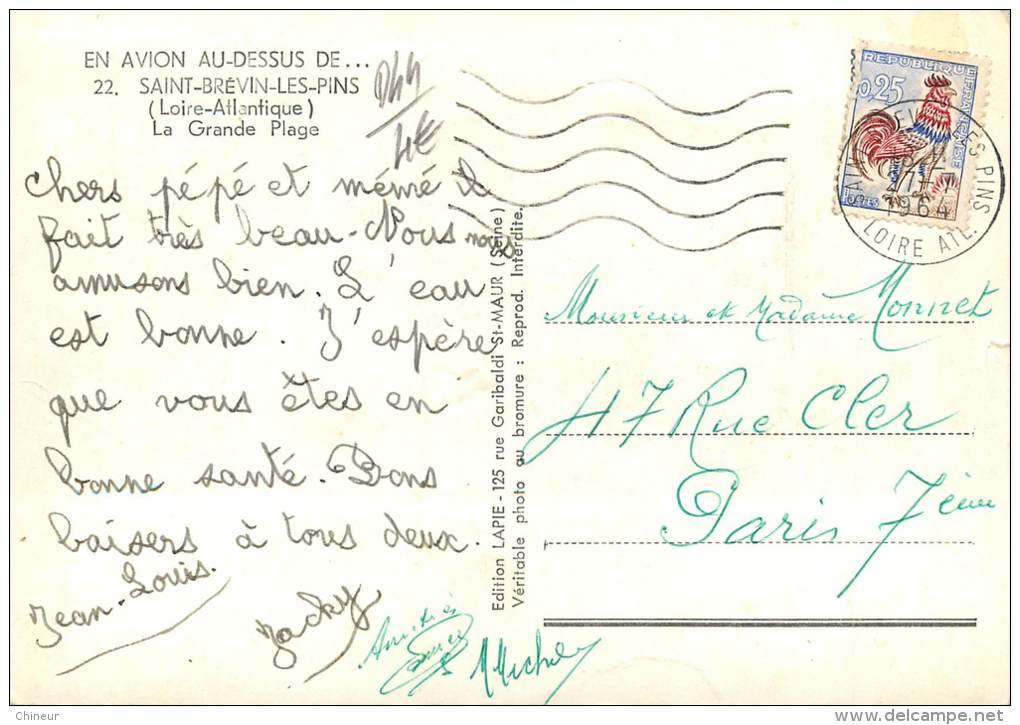 EN AVION AU-DESSUS DE...
22. SAINT-BRÉVIN-LES-PINS
(Loire-Atlantique)
La Grande Plage
044
4€
chers pépé et mémé il
fait très beau - Nous nous
amusons bien. L'eau
est bonne. J'espère
que vous êtes en
bonne santé. Bons
baisers à tous deux.
Jean-Louis.
Jacky
Amitiés
Michel
Edition LAPIE - 125 rue Garibaldi St-MAUR (Seine)
Véritable photo au bromure : Reprod. Interdite.
REPUBLIQUE FRANÇAISE
0,25
POSTES
1964
LOIRE ATL.
Monsieur et Madame Monnet
47 Rue Cler
Paris 7ème
Chineur
www.delcampe.net